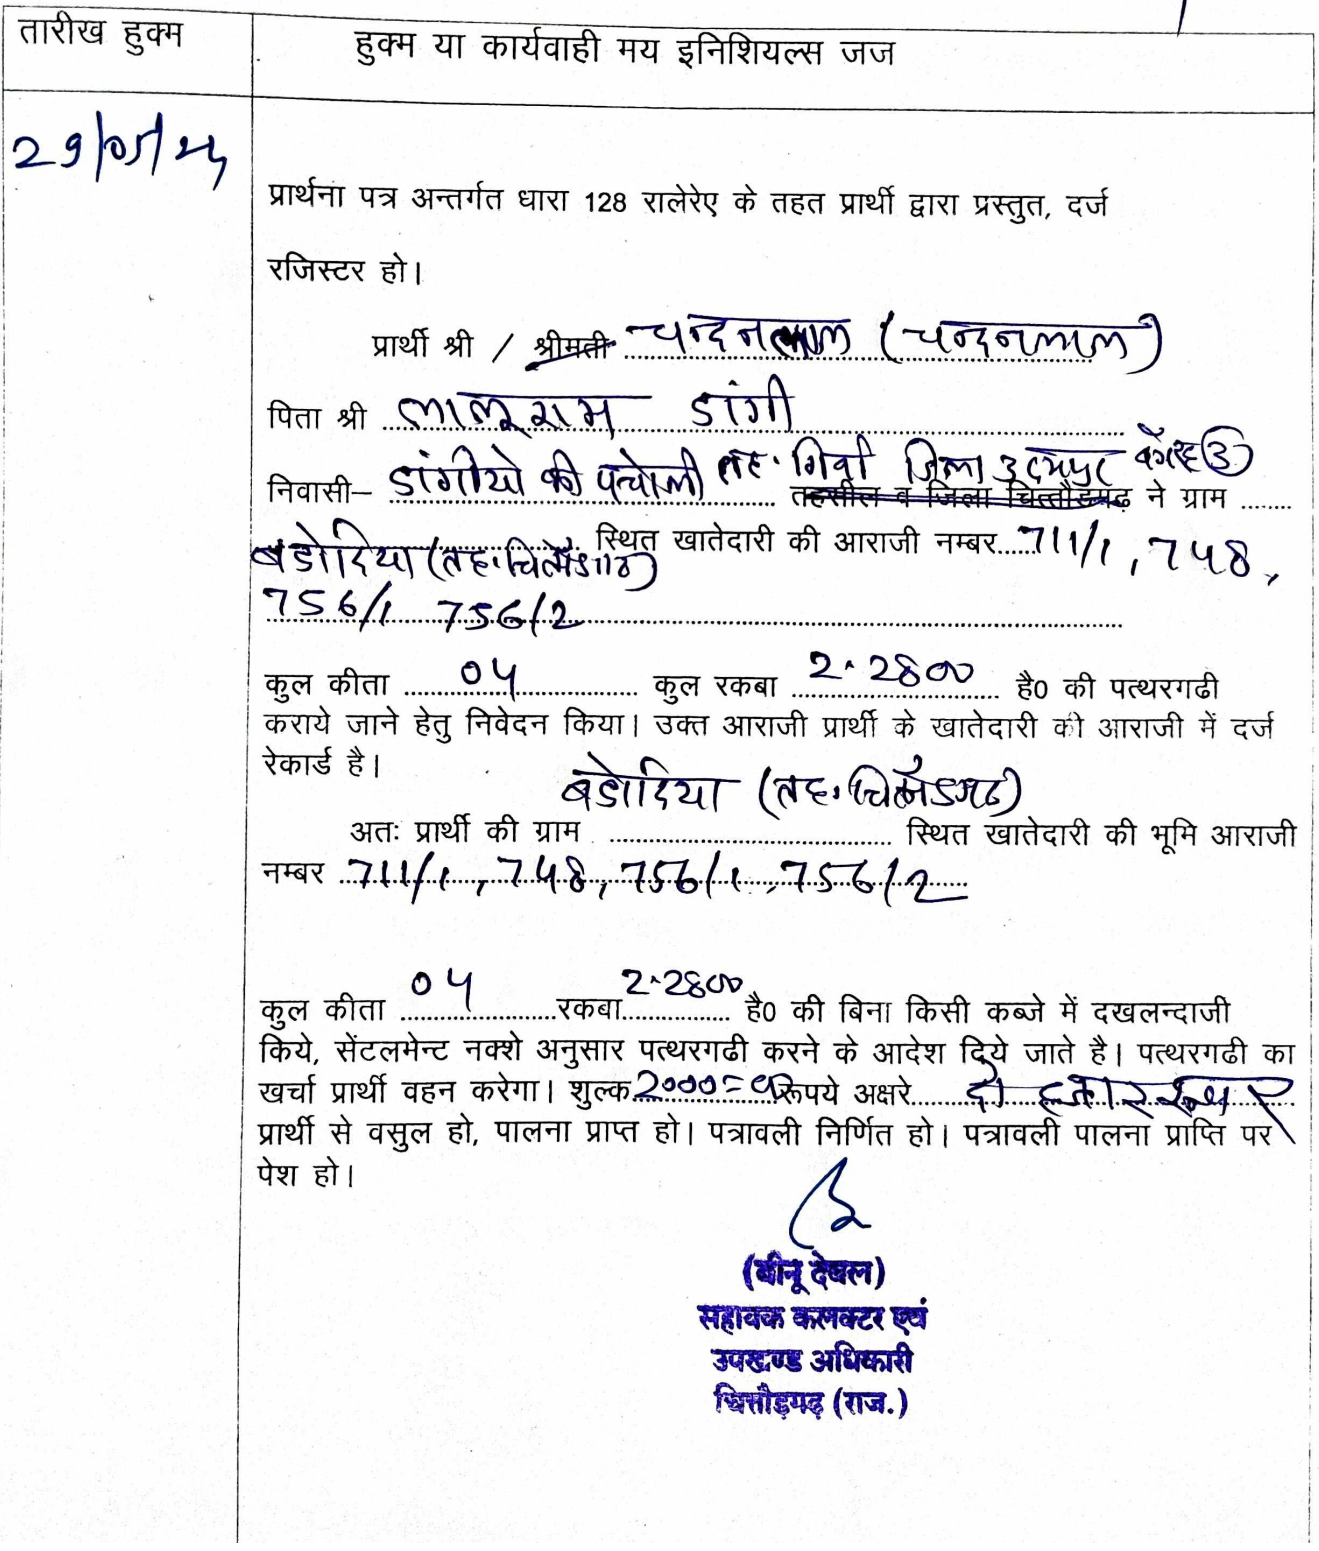 तारीख हुक्म
हुक्म या कार्यवाही मय इनिशियल्स जज
29/05/24
प्रार्थना पत्र अन्तर्गत धारा 128 रालेरेए के तहत प्रार्थी द्वारा प्रस्तुत, दर्ज
रजिस्टर हो।
प्रार्थी श्री / श्रीमती चन्दनलाल (चन्दनलाल)
पिता श्री लालूराम डांगी
निवासी– डांगीयो की पचोली तह. गिर्वा जिला उदयपुर वगैरह (3) तहसील व जिला चित्तौडगढ ने ग्राम ........
बडोदिया (तह. चित्तौडगढ) स्थित खातेदारी की आराजी नम्बर.....711/1, 748,
756/1 756/2
कुल कीता 04 कुल रकबा 2.2800 है0 की पत्थरगढी
कराये जाने हेतु निवेदन किया। उक्त आराजी प्रार्थी के खातेदारी की आराजी में दर्ज
रेकार्ड है।
अतः प्रार्थी की ग्राम बडोदिया (तह. चित्तौडगढ) स्थित खातेदारी की भूमि आराजी
नम्बर 711/1, 748, 756/1, 756/2
कुल कीता 04 रकबा 2.2800 है0 की बिना किसी कब्जे में दखलन्दाजी
किये, सेंटलमेन्ट नक्शे अनुसार पत्थरगढी करने के आदेश दिये जाते है। पत्थरगढी का
खर्चा प्रार्थी वहन करेगा। शुल्क 2000=00 रूपये अक्षरे दो हजार रूपए
प्रार्थी से वसुल हो, पालना प्राप्त हो। पत्रावली निर्णित हो। पत्रावली पालना प्राप्ति पर
पेश हो।
(बीनू देवल)
सहायक कलक्टर एवं
उपखण्ड अधिकारी
चित्तौड़गढ़ (राज.)